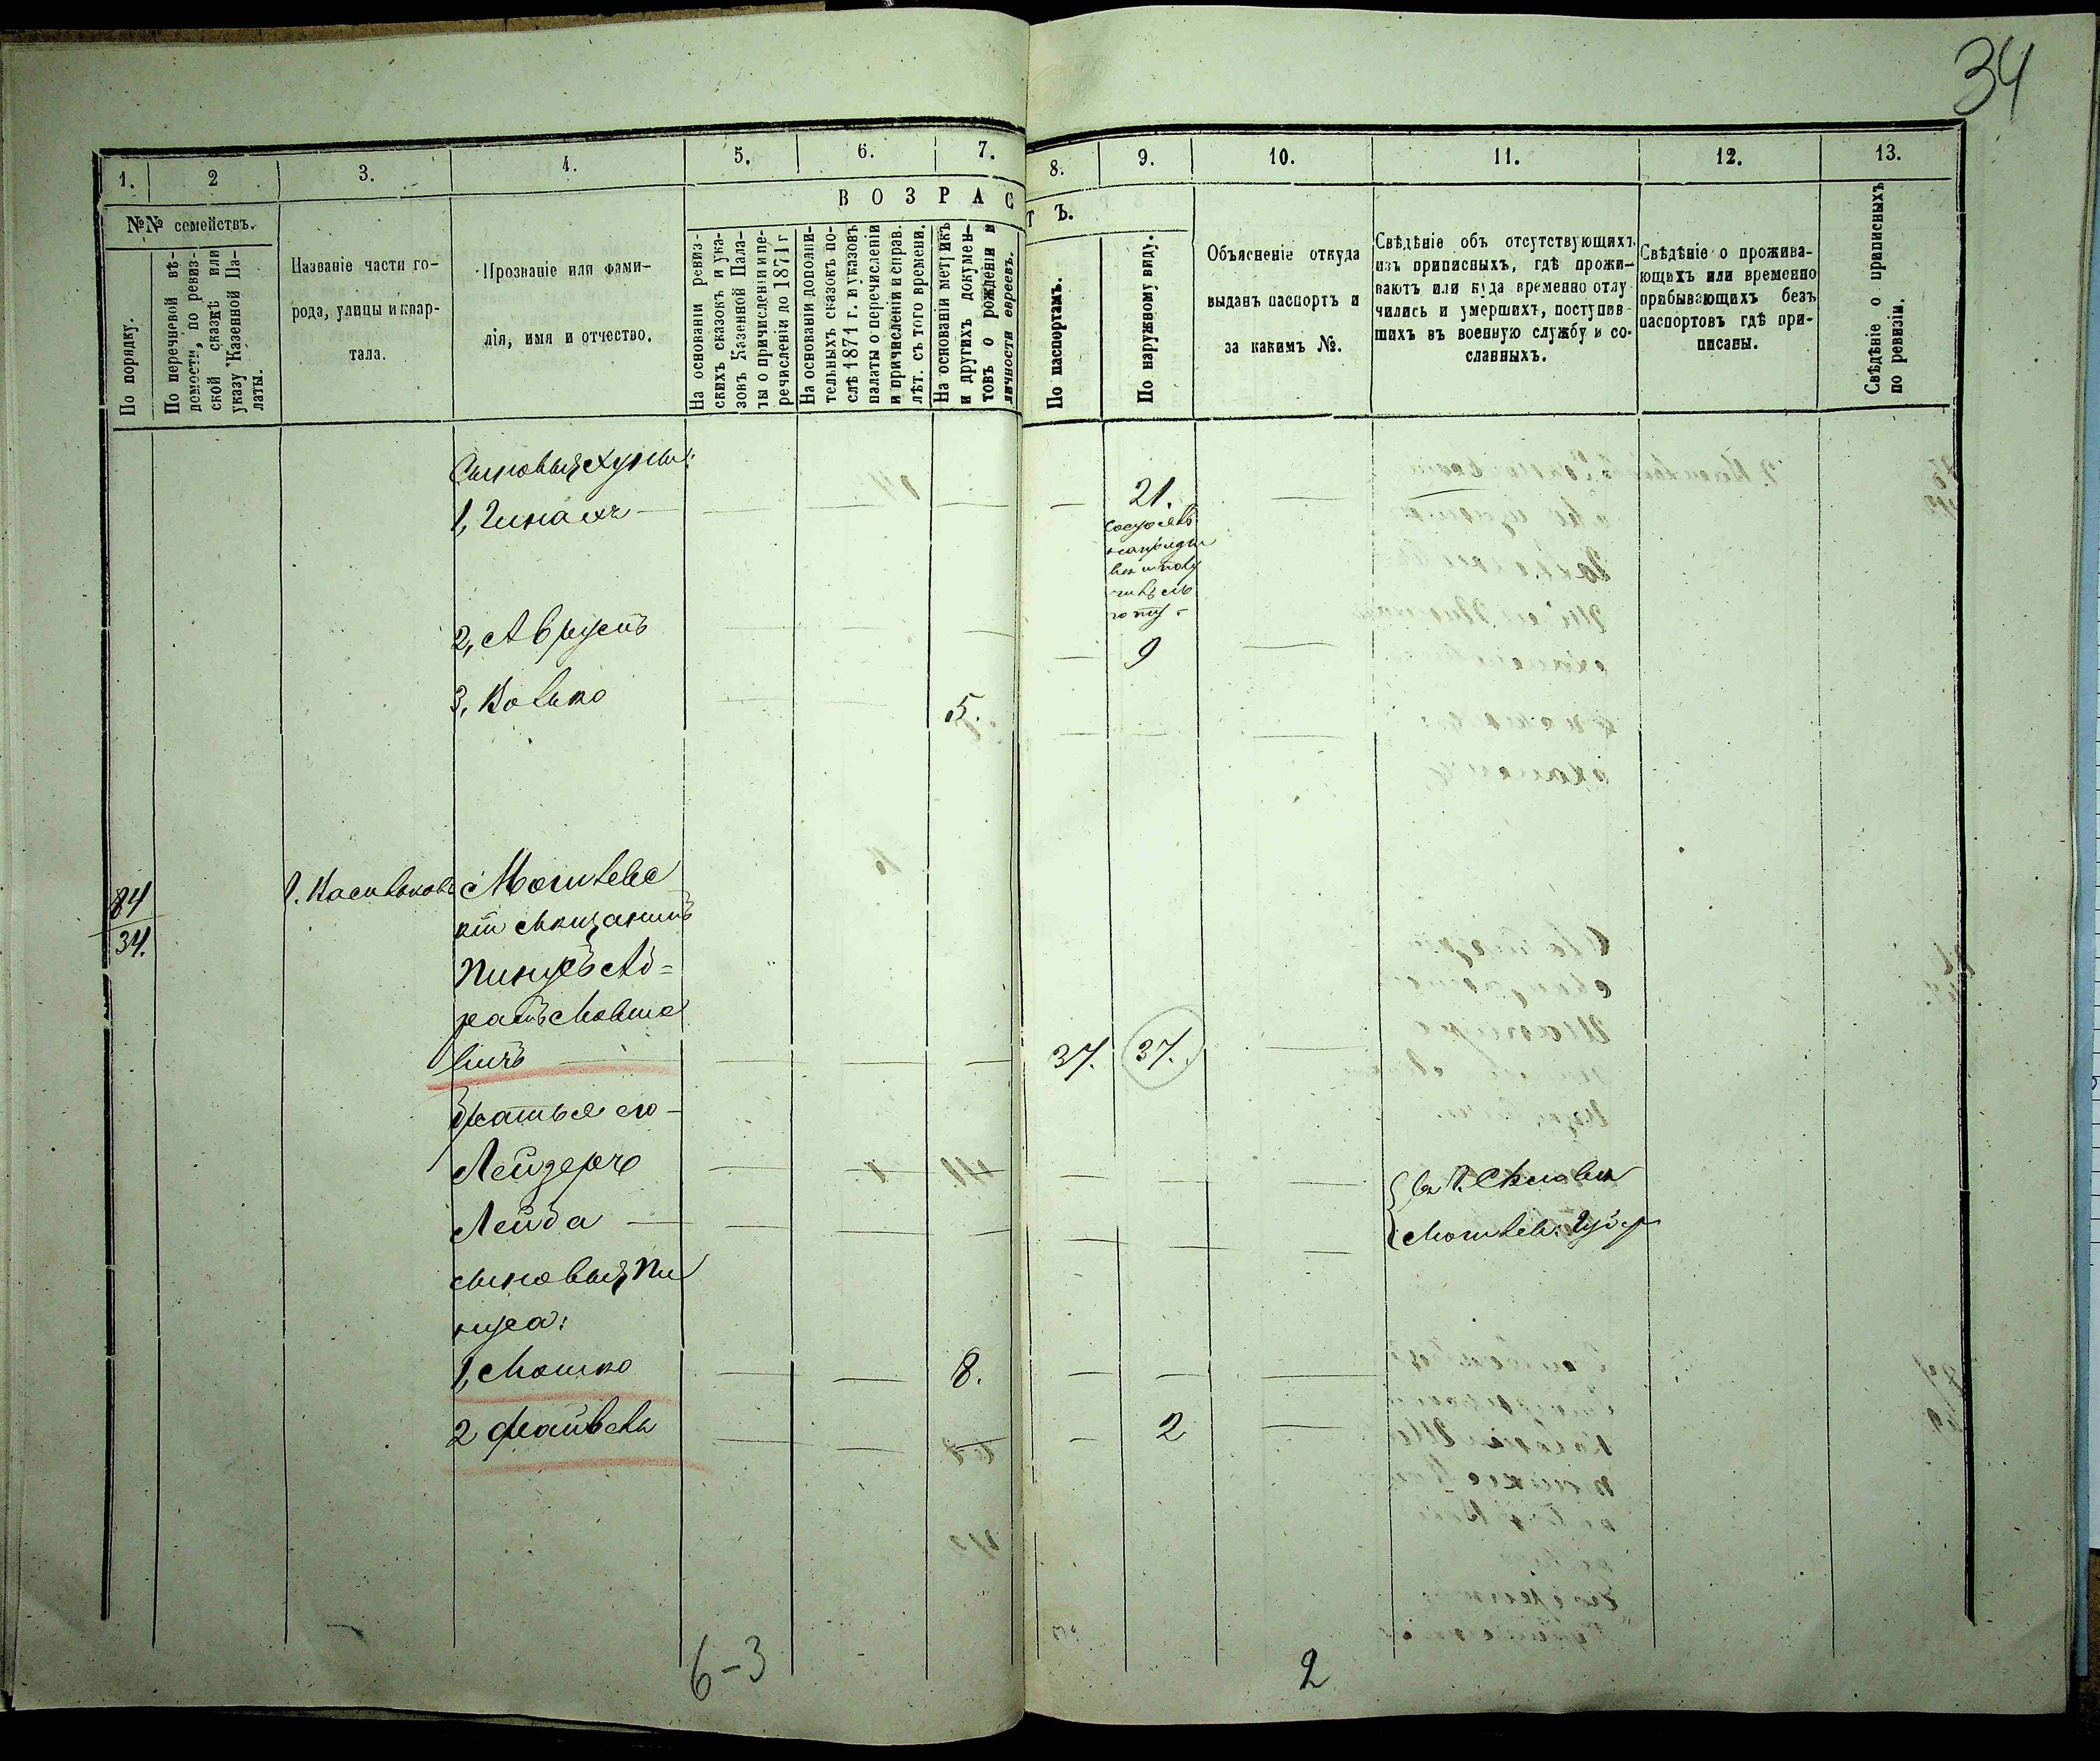 34
1.
2
3.
4.
5.
6.
7.
8.
9.
10.
11.
12.
13.
№№ семействъ.
ВОЗРАС
ТЪ.
По порядку.
По перечневой вѣ-
домости, по ревиз-
ской сказкѣ или
указу Казенной Па-
латы.
Названіе части го-
рода, улицы и квар-
тала.
Прозваніе или фами-
лія, имя и отчество.
На основаніи ревиз-
скихъ сказокъ и ука-
зовъ Казенной Пала-
ты о причисленіи и пе-
речисленіи до 1871 г.
На основаніи дополни-
тельныхъ сказокъ по-
слѣ 1871 г. и указовъ
палаты о перечисленіи
и причисленіи и справ.
лѣт. съ того времени.
На основаніи метрикъ
и другихъ докумен-
товъ о рожденіи и
личности евреевъ.
По паспортамъ.
По наружному виду.
Объясненіе откуда
выданъ паспортъ и
за какимъ №.
Свѣдѣніе объ отсутствующихъ
изъ приписныхъ, гдѣ прожи-
ваютъ или куда временно отлу
чились и умершихъ, поступив-
шихъ въ военную службу и со-
сланныхъ.
Свѣдѣніе о прожива-
ющихъ или временно
прибывающихъ безъ
паспортовъ гдѣ при-
писаны.
Свѣдѣніе о приписныхъ
по ревизіи.
Сыновья
1, — — — — 21. —
2, — — — — 9 —
3, Волько — — 5. — — —
84
34.
г. Васильковъ Могилевс
кій мѣщанинъ
Пинхусъ Аб=
рамъ Мовшо
вичъ — — — — 37. 37. —
братья его —
Лейзеръ — — — — — —
Лейба — — — — — — —
{ въ г.
Могилев: Губер
сыновья Пи
нхуса:
1, Мошко — — 8. — — —
2 Файвель — — — — 2 —
6-3
2